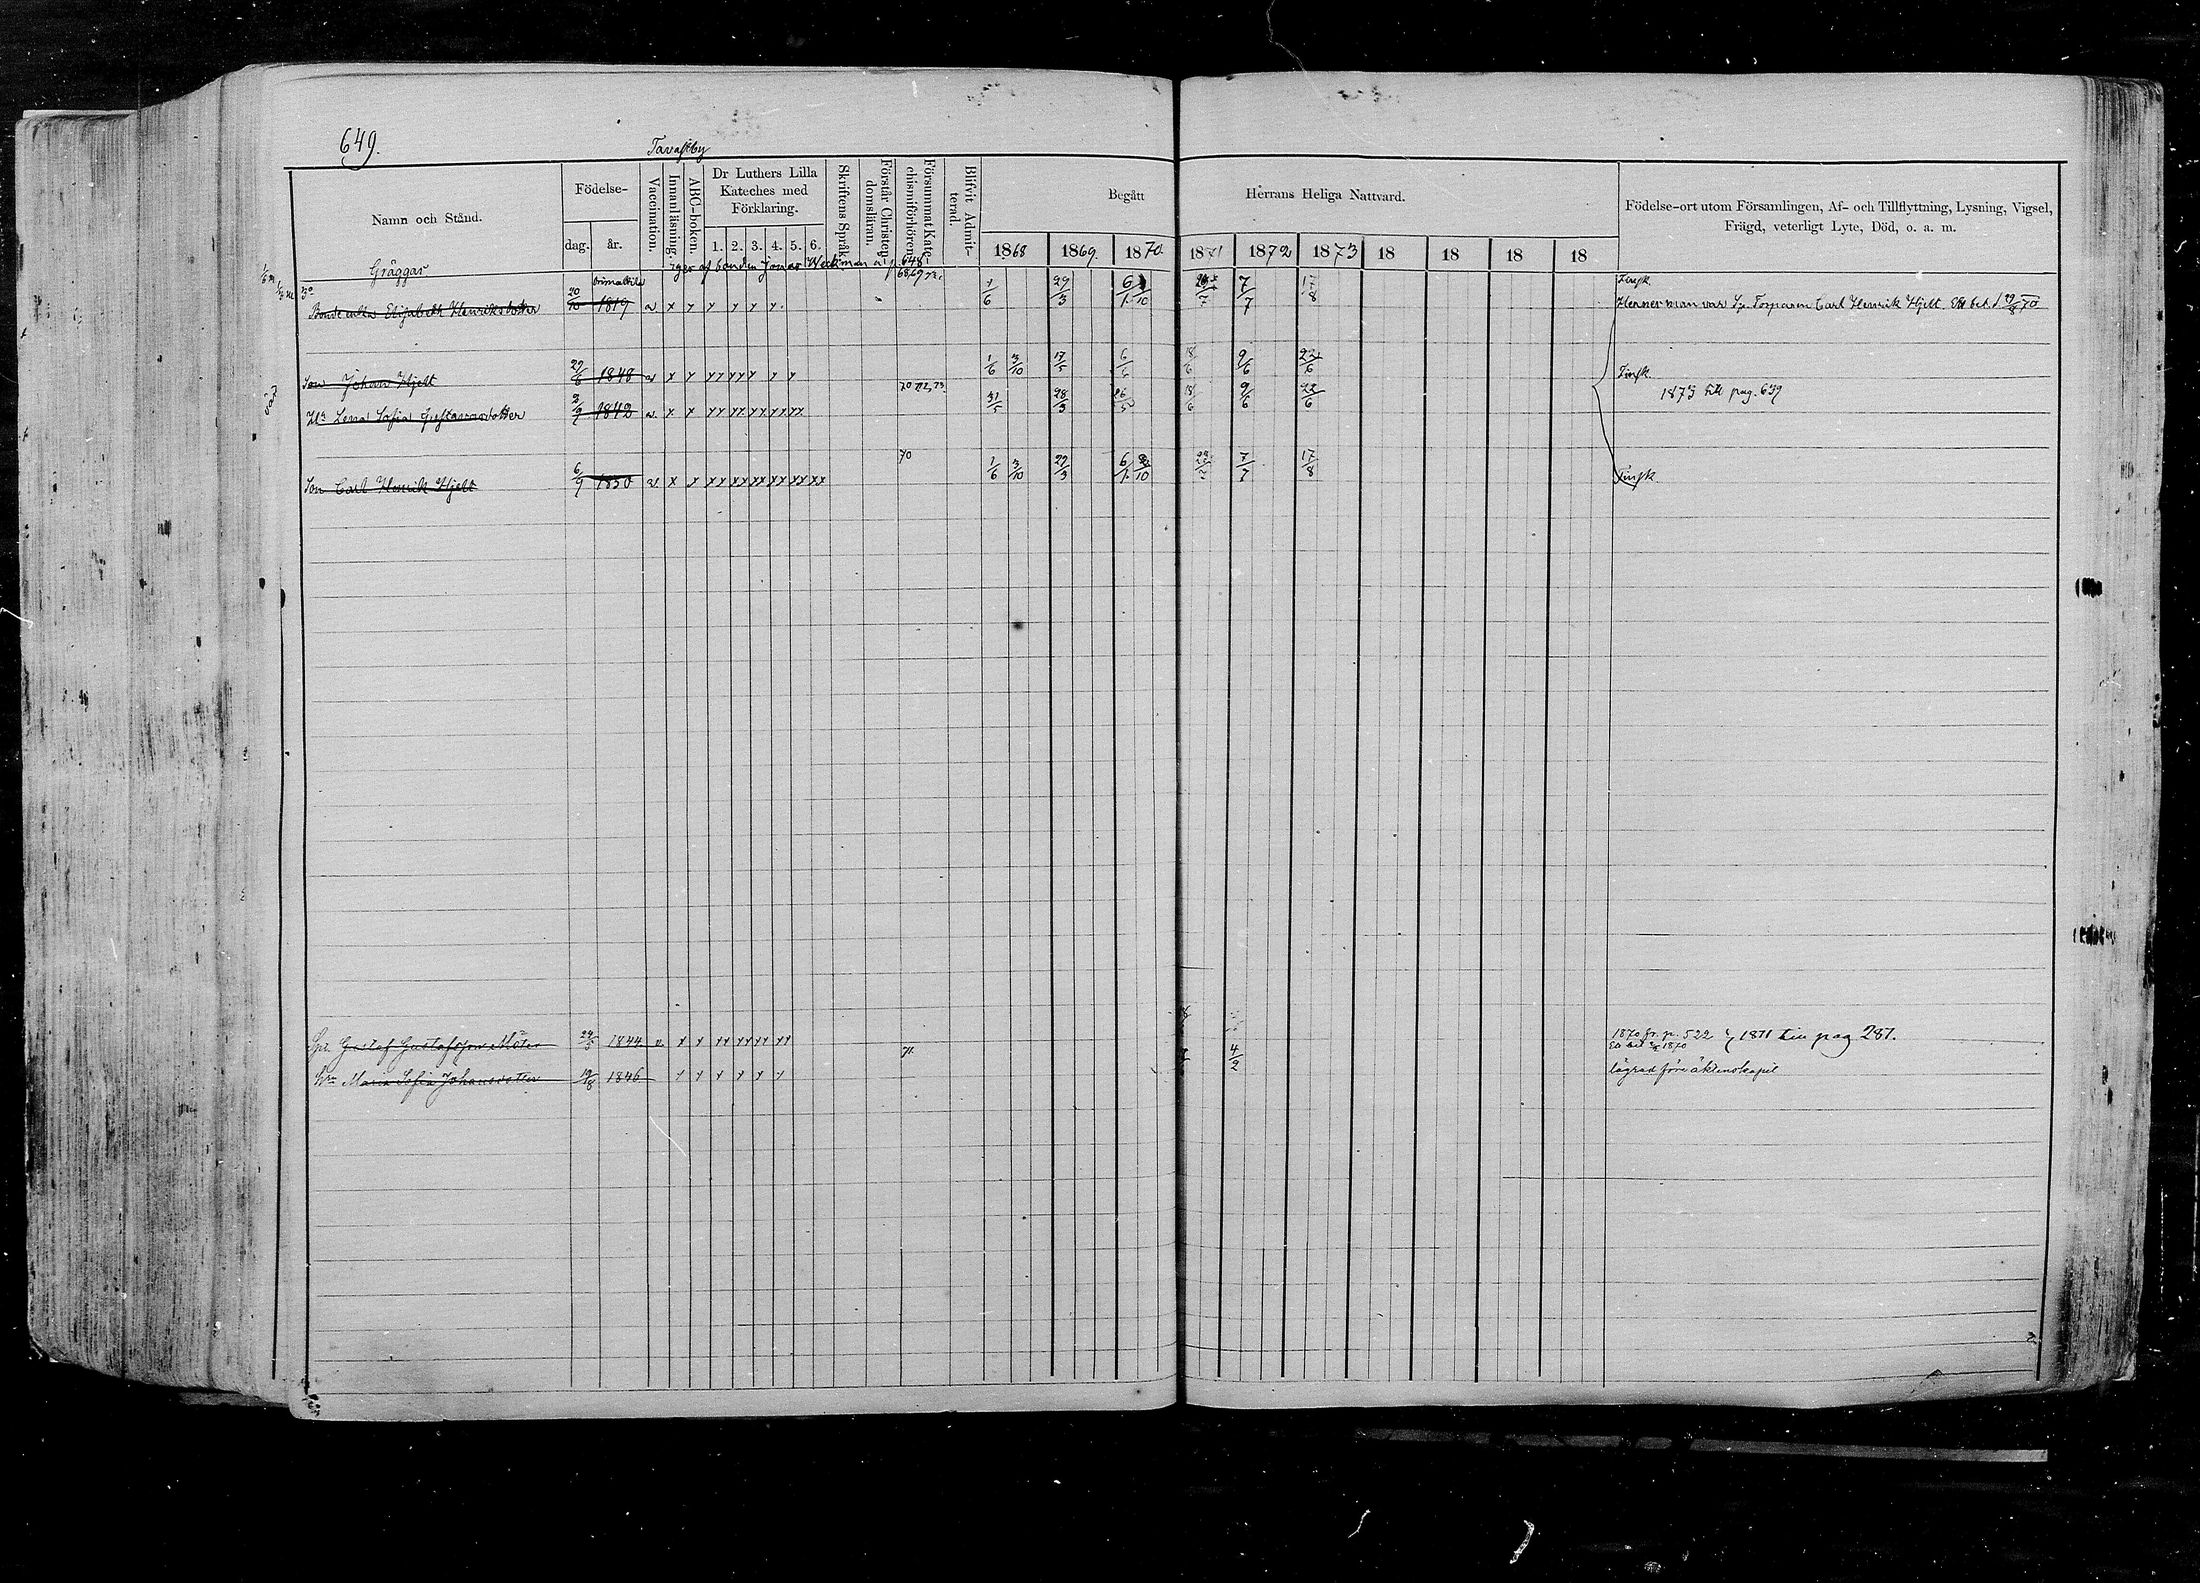 649.
Tavastby
Namn och Stånd.
Födelse-
dag. år.
Vaccination.
Innanläsning.
ABC-boken.
Dr Luthers Lilla
Kateches med
Förklaring.
1. 2. 3. 4. 5. 6.
Skriftens Språk.
Förstår Christen-
domsläran.
Försummat Kate-
chismiförhören.
Blifvit Admit-
terad.
Begått Herrans Heliga Nattvard.
1868 1869. 1870. 1871 1872 1873 18 18 18 18
Födelse-ort utom Församlingen, Af- och Tillflyttning, Lysning, Vigsel,
Frägd, veterligt Lyte, Död, o. a. m.
Gräggas äges af bonden Jonas Weckman à p 648
Finsk.
Bonde enka Elisabeth Henriksdotter 20/10 1819 v x x x x x x 1/6 29/3 7/7 17/8 Hennes man var Carl Henrik Hjelt
Son Johan Hjelt 27/6 1848 v x x xx xx x x 1/6 3/10 17/5 6/6 18/6 9/6 22/6 Finsk.
70 72, 73.
H:u Lena Sofia Gustavsdotter 2/9 1842 v x x xx xx xx xx xx 31/5 28/3 26/5 18/6 9/6 22/6 1873 till pag. 639
70
Son Carl Henrik Hjelt 6/9 1850 v x x xx xx xx xx xx xx 1/6 3/10 29/3 7/7 17/8 Finsk.
Gustaf Gustafsson 24/5 1844 v x x xx xx xx xx 71. 4/2 1870 fr. p. 522 1871 till pag 287.
Maria Sofia Johansdotter 19/8 1846 x x x x x x lägrad före äktenskapet